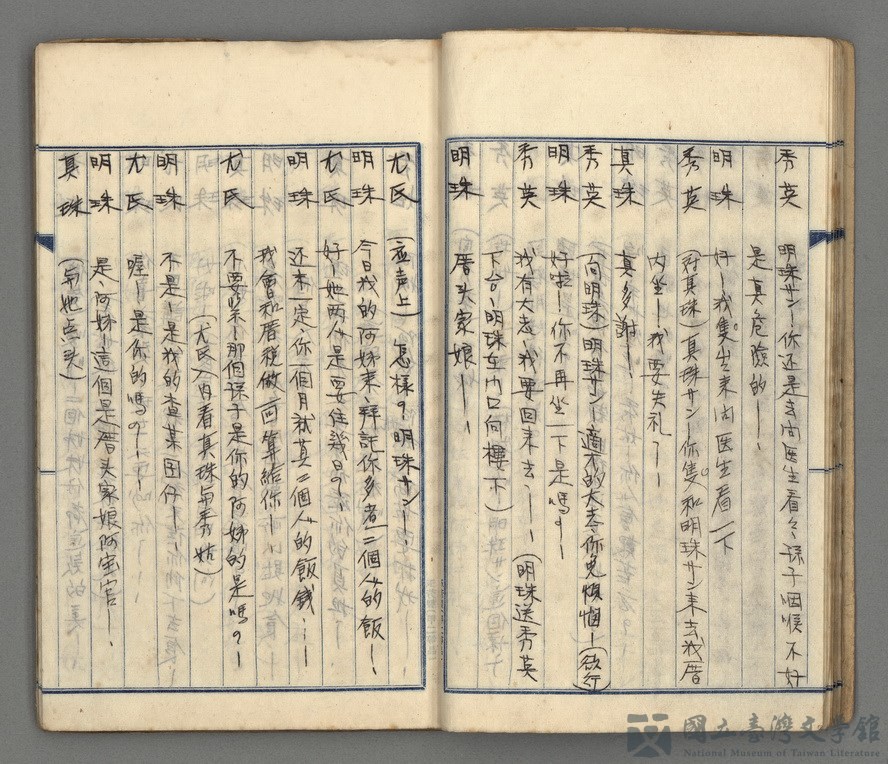 秀英 明珠サン！你还是去向医生看々、孩子咽喉不好
是真危險的！、
明珠 好！我隻出来向医生看一下
秀英 (対真珠) 真珠サン！你隻和明珠サン来去我厝
内坐！我要失礼！！
真珠 真多謝！、
秀英 (向明珠) 明珠サン！適才的大夫、你免煩惱！(欲行)
明珠 好啦！你不再坐一下是嗎？！
秀英 我有大志、我要回来去！！、(明珠送秀英
下台、明珠在門口向樓下)
明珠 厝头家娘！！、
尤氏 (应声上) 怎樣？明珠サン！
明珠 今日我的阿姊来、拜託你多煮二個人的飯！、
尤氏 好！她两人是要住幾日？！
明珠 还未一定、你一個月就算二個人的飯錢、！！
我會和厝税做一回算給你！！、
尤氏 不要紧！那個孩子是你的阿姊的是嗎？！
(尤氏入内看真珠与秀姑)
明珠 不是！是我的查某囝仔！
尤氏 喔！是你的嗎？！
明珠 是、阿姊！這個是厝头家娘阿宝官！、
真珠 (与她点头)
國立臺灣文學館
National Museum of Taiwan Literature